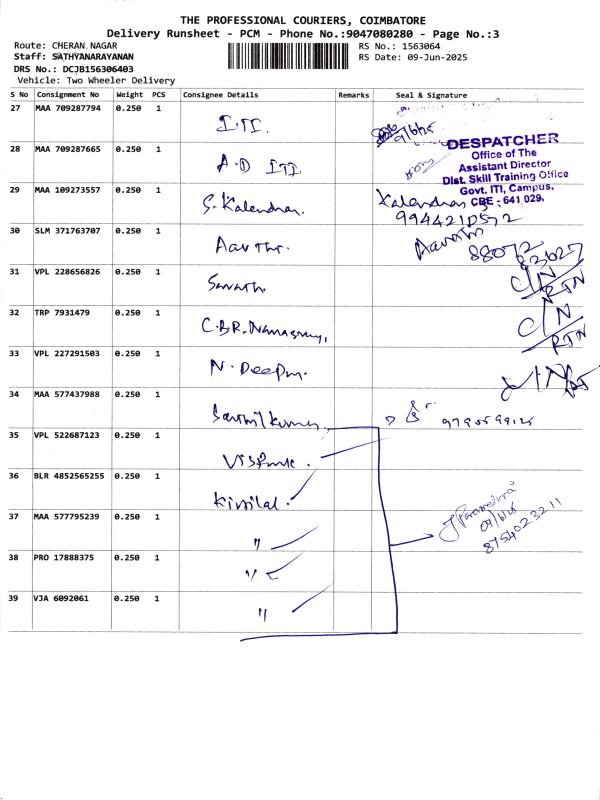 THE PROFESSIONAL COURIERS, COIMBATORE
Delivery Runsheet - PCM - Phone No.:9047080280 - Page No.:3
Route: CHERAN NAGAR
Staff: SATHYANARAYANAN
DRS No.: DCJB156306403
Vehicle: Two Wheeler Delivery
RS No.: 1563064
RS Date: 09-Jun-2025
S No Consignment No Weight PCS Consignee Details Remarks Seal & Signature
27 MAA 709287794 0.250 1 ITI.
9/6/25
28 MAA 709287665 0.250 1 A.D ITI
DESPATCHER
Office of The
Assistant Director
Dist. Skill Training Office
Govt. ITI, Campus.
CBE - 641 029.
29 MAA 109273557 0.250 1 S. Kalendran. Kalendran S
9944210572
30 SLM 371763707 0.250 1 Aarthi. Aarathi
88072
83627
31 VPL 228656826 0.250 1 D/N
RTN
32 TRP 7931479 0.250 1 C.B.R. D/N
RTN
33 VPL 227291503 0.250 1 N. Deepa.
34 MAA 577437988 0.250 1
35 VPL 522687123 0.250 1
36 BLR 4852565255 0.250 1 Kirtilal.
37 MAA 577795239 0.250 1 "
09/6/25
8754023211
38 PRO 17888375 0.250 1 "
39 VJA 6092061 0.250 1 "